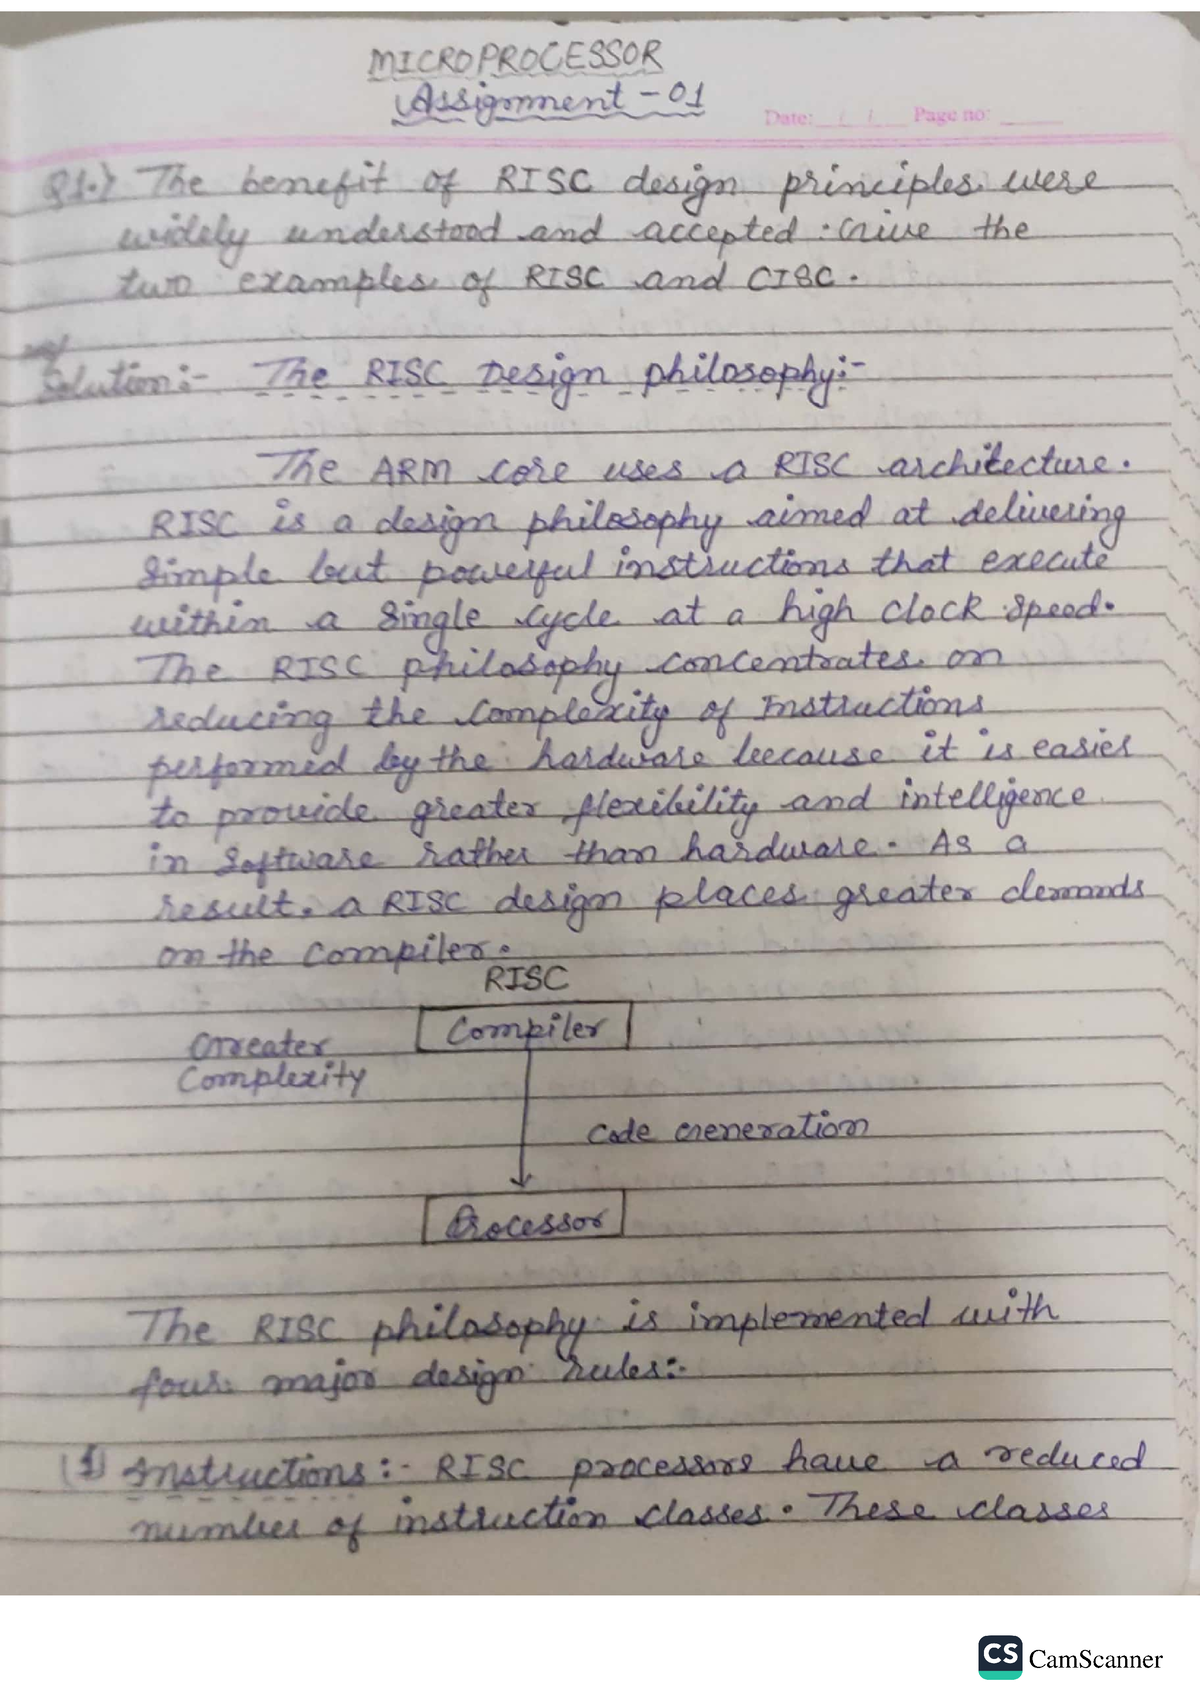 MICROPROCESSOR
Assignment - 01
Date: / / Page no:
Q1.) The benefit of RISC design principles were
widely understood and accepted. Give the
two examples of RISC and CISC.
Solution:- The RISC Design philosophy:-
The ARM core uses a RISC architecture.
RISC is a design philosophy aimed at delivering
simple but powerful instructions that execute
within a single cycle at a high clock speed.
The RISC philosophy concentrates on
reducing the complexity of Instructions
performed by the hardware because it is easier
to provide greater flexibility and intelligence
in software rather than hardware. As a
result, a RISC design places greater demands
on the compiler.
RISC
Compiler
Greater
Complexity
Code Generation
Processor
The RISC philosophy is implemented with
four major design rules:-
(1) Instructions:- RISC processors have a reduced
number of instruction classes. These classes
CS CamScanner